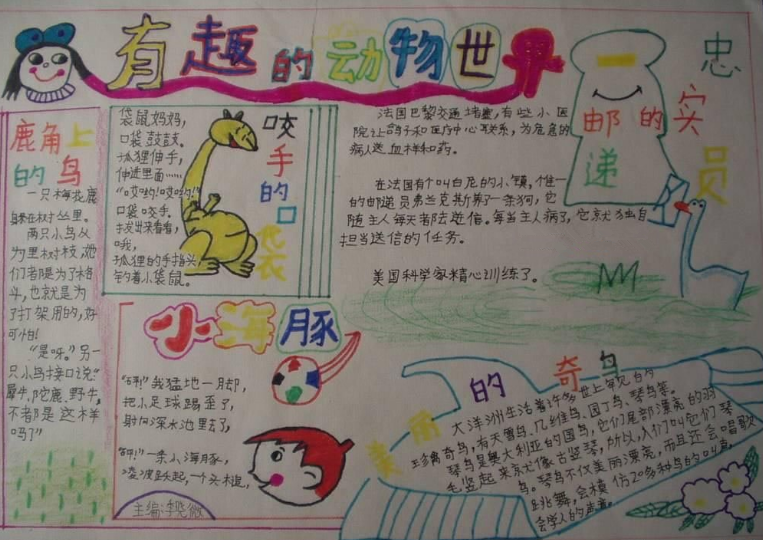 有趣的动物世界
鹿角上
的鸟
一只梅花鹿
躲在树丛里。
两只小鸟以
为里树枝,她
们都是为了格
斗,也就是为
了打架用的,好
可怕!
“是呀。”另一
只小鸟接口说:“
犀牛,驼鹿,野牛,
不都是这样
吗?”
咬手的口袋
袋鼠妈妈,
口袋鼓鼓。
狐狸伸手,
伸进里面……
“哎哟!哎哟!”
口袋咬手。
拔出来看看,
哦,
狐狸的手指头,
钓着小袋鼠。
忠实的邮递员
法国巴黎交通堵塞,有些小医
院让鸽子和医疗中心联系,为危急的
病人送血样和药。
在法国有个叫白尼的小镇,惟一
的邮递员弗兰克斯养了一条狗,它
随主人每天都去送信。每当主人病了,它就独自
担当送信的任务。
美国科学家精心训练了。
小海豚
“砰!”我猛地一脚,
把小足球踢歪了,
射向深水池里去了,
“砰!”一条小海豚,
凌波跃起,一个头槌,
主编:李晓微
美丽的奇鸟
大洋洲生活着许多世上罕见的
珍禽奇鸟,有天鹭鸟、几维鸟、园丁鸟、琴鸟等。
琴鸟是奥大利亚的国鸟,它们尾部漂亮的羽
毛竖起来京尤像古竖琴,所以,人们叫它们琴
鸟。琴鸟不仅美丽漂亮,而且还会唱歌
跳舞,会模仿20多种鸟的叫声,
会学人的声音。